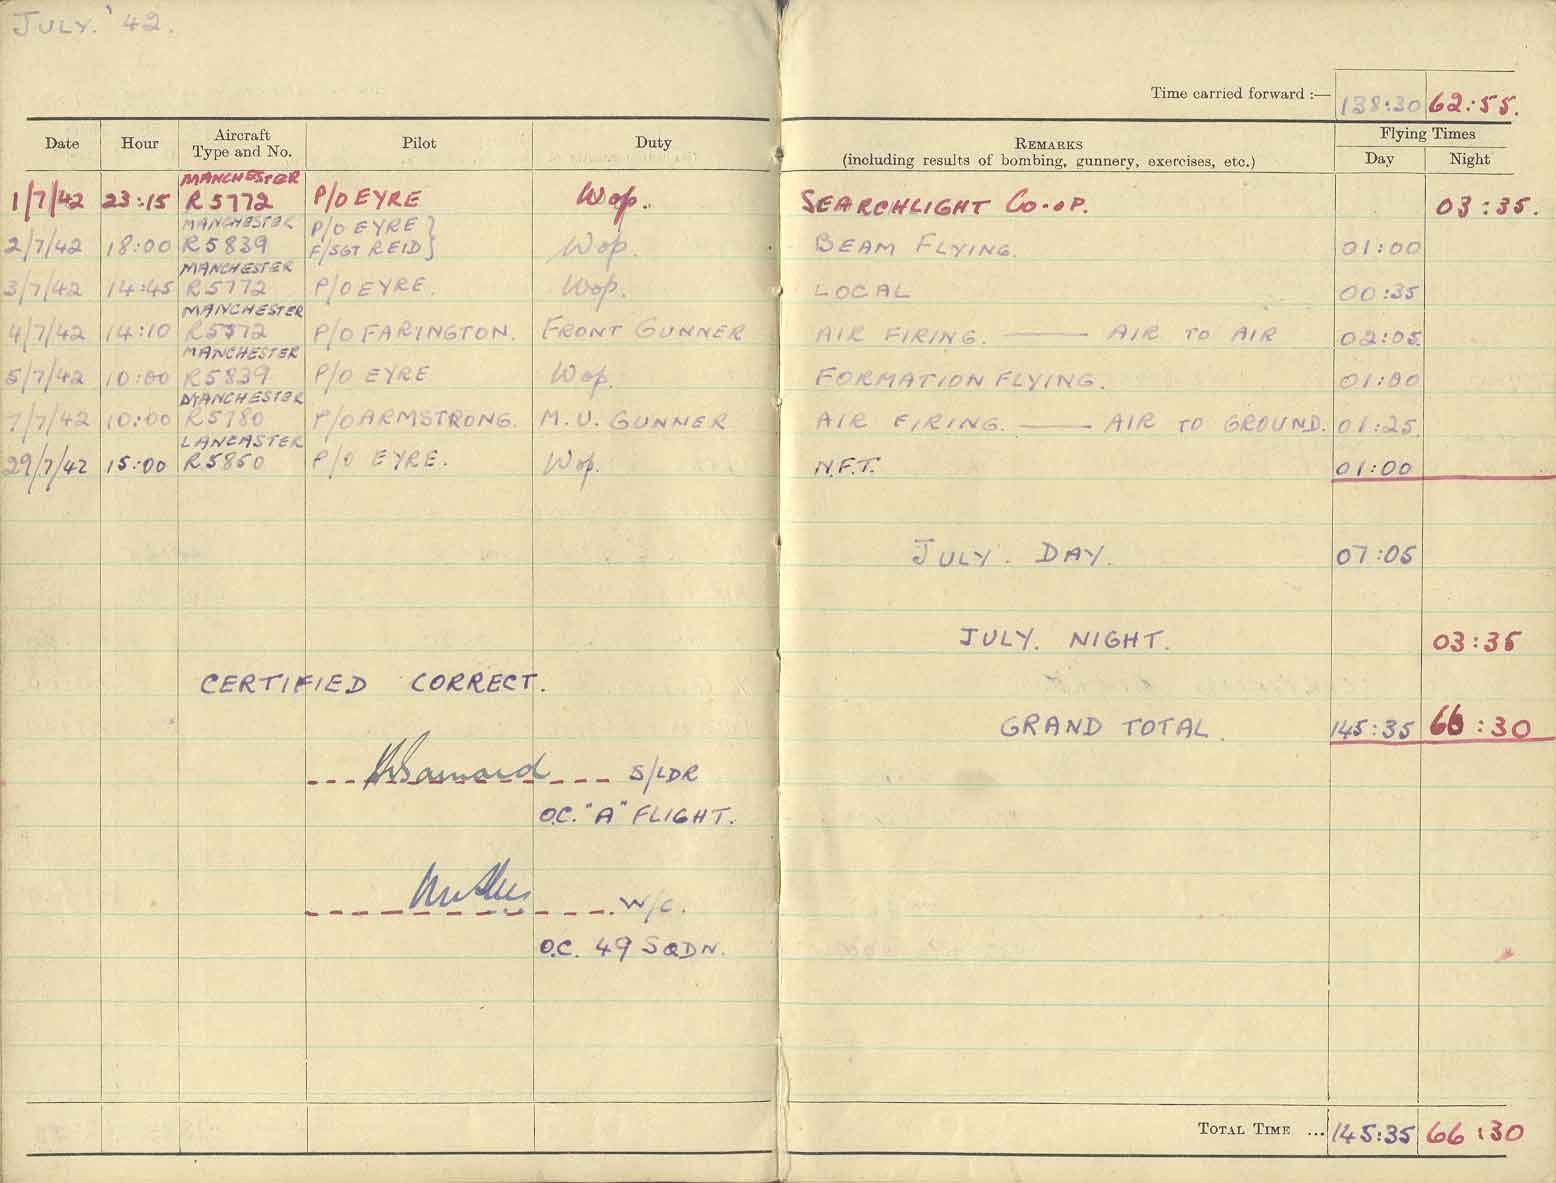 JULY. '42.
Time carried forward :— 138:30 62:55.
Date Hour Aircraft Type and No. Pilot Duty REMARKS (including results of bombing, gunnery, exercises, etc.) Flying Times Day Night
1/7/42 23:15 MANCHESTER R5772 P/O EYRE Wop. SEARCHLIGHT CO-OP. 03:35.
2/7/42 18:00 MANCHESTER R5839 P/O EYRE} F/SGT REID} Wop. BEAM FLYING. 01:00
3/7/42 14:45 MANCHESTER R5772 P/O EYRE. Wop. LOCAL 00:35
4/7/42 14:10 MANCHESTER R5772 P/O FARINGTON. FRONT GUNNER AIR FIRING. —— AIR TO AIR 02:05.
5/7/42 10:00 MANCHESTER R5839 P/O EYRE Wop. FORMATION FLYING. 01:00
7/7/42 10:00 MANCHESTER R5780 P/O ARMSTRONG. M.U. GUNNER AIR FIRING. —— AIR TO GROUND. 01:25.
29/7/42 15:00 LANCASTER R5850 P/O EYRE. Wop. N.F.T. 01:00
JULY. DAY. 07:05
JULY. NIGHT. 03:35
CERTIFIED CORRECT.
GRAND TOTAL. 145:35 66:30
S/LDR
O.C. "A" FLIGHT.
W/C.
O.C. 49 SQDN.
TOTAL TIME ... 145:35 66:30